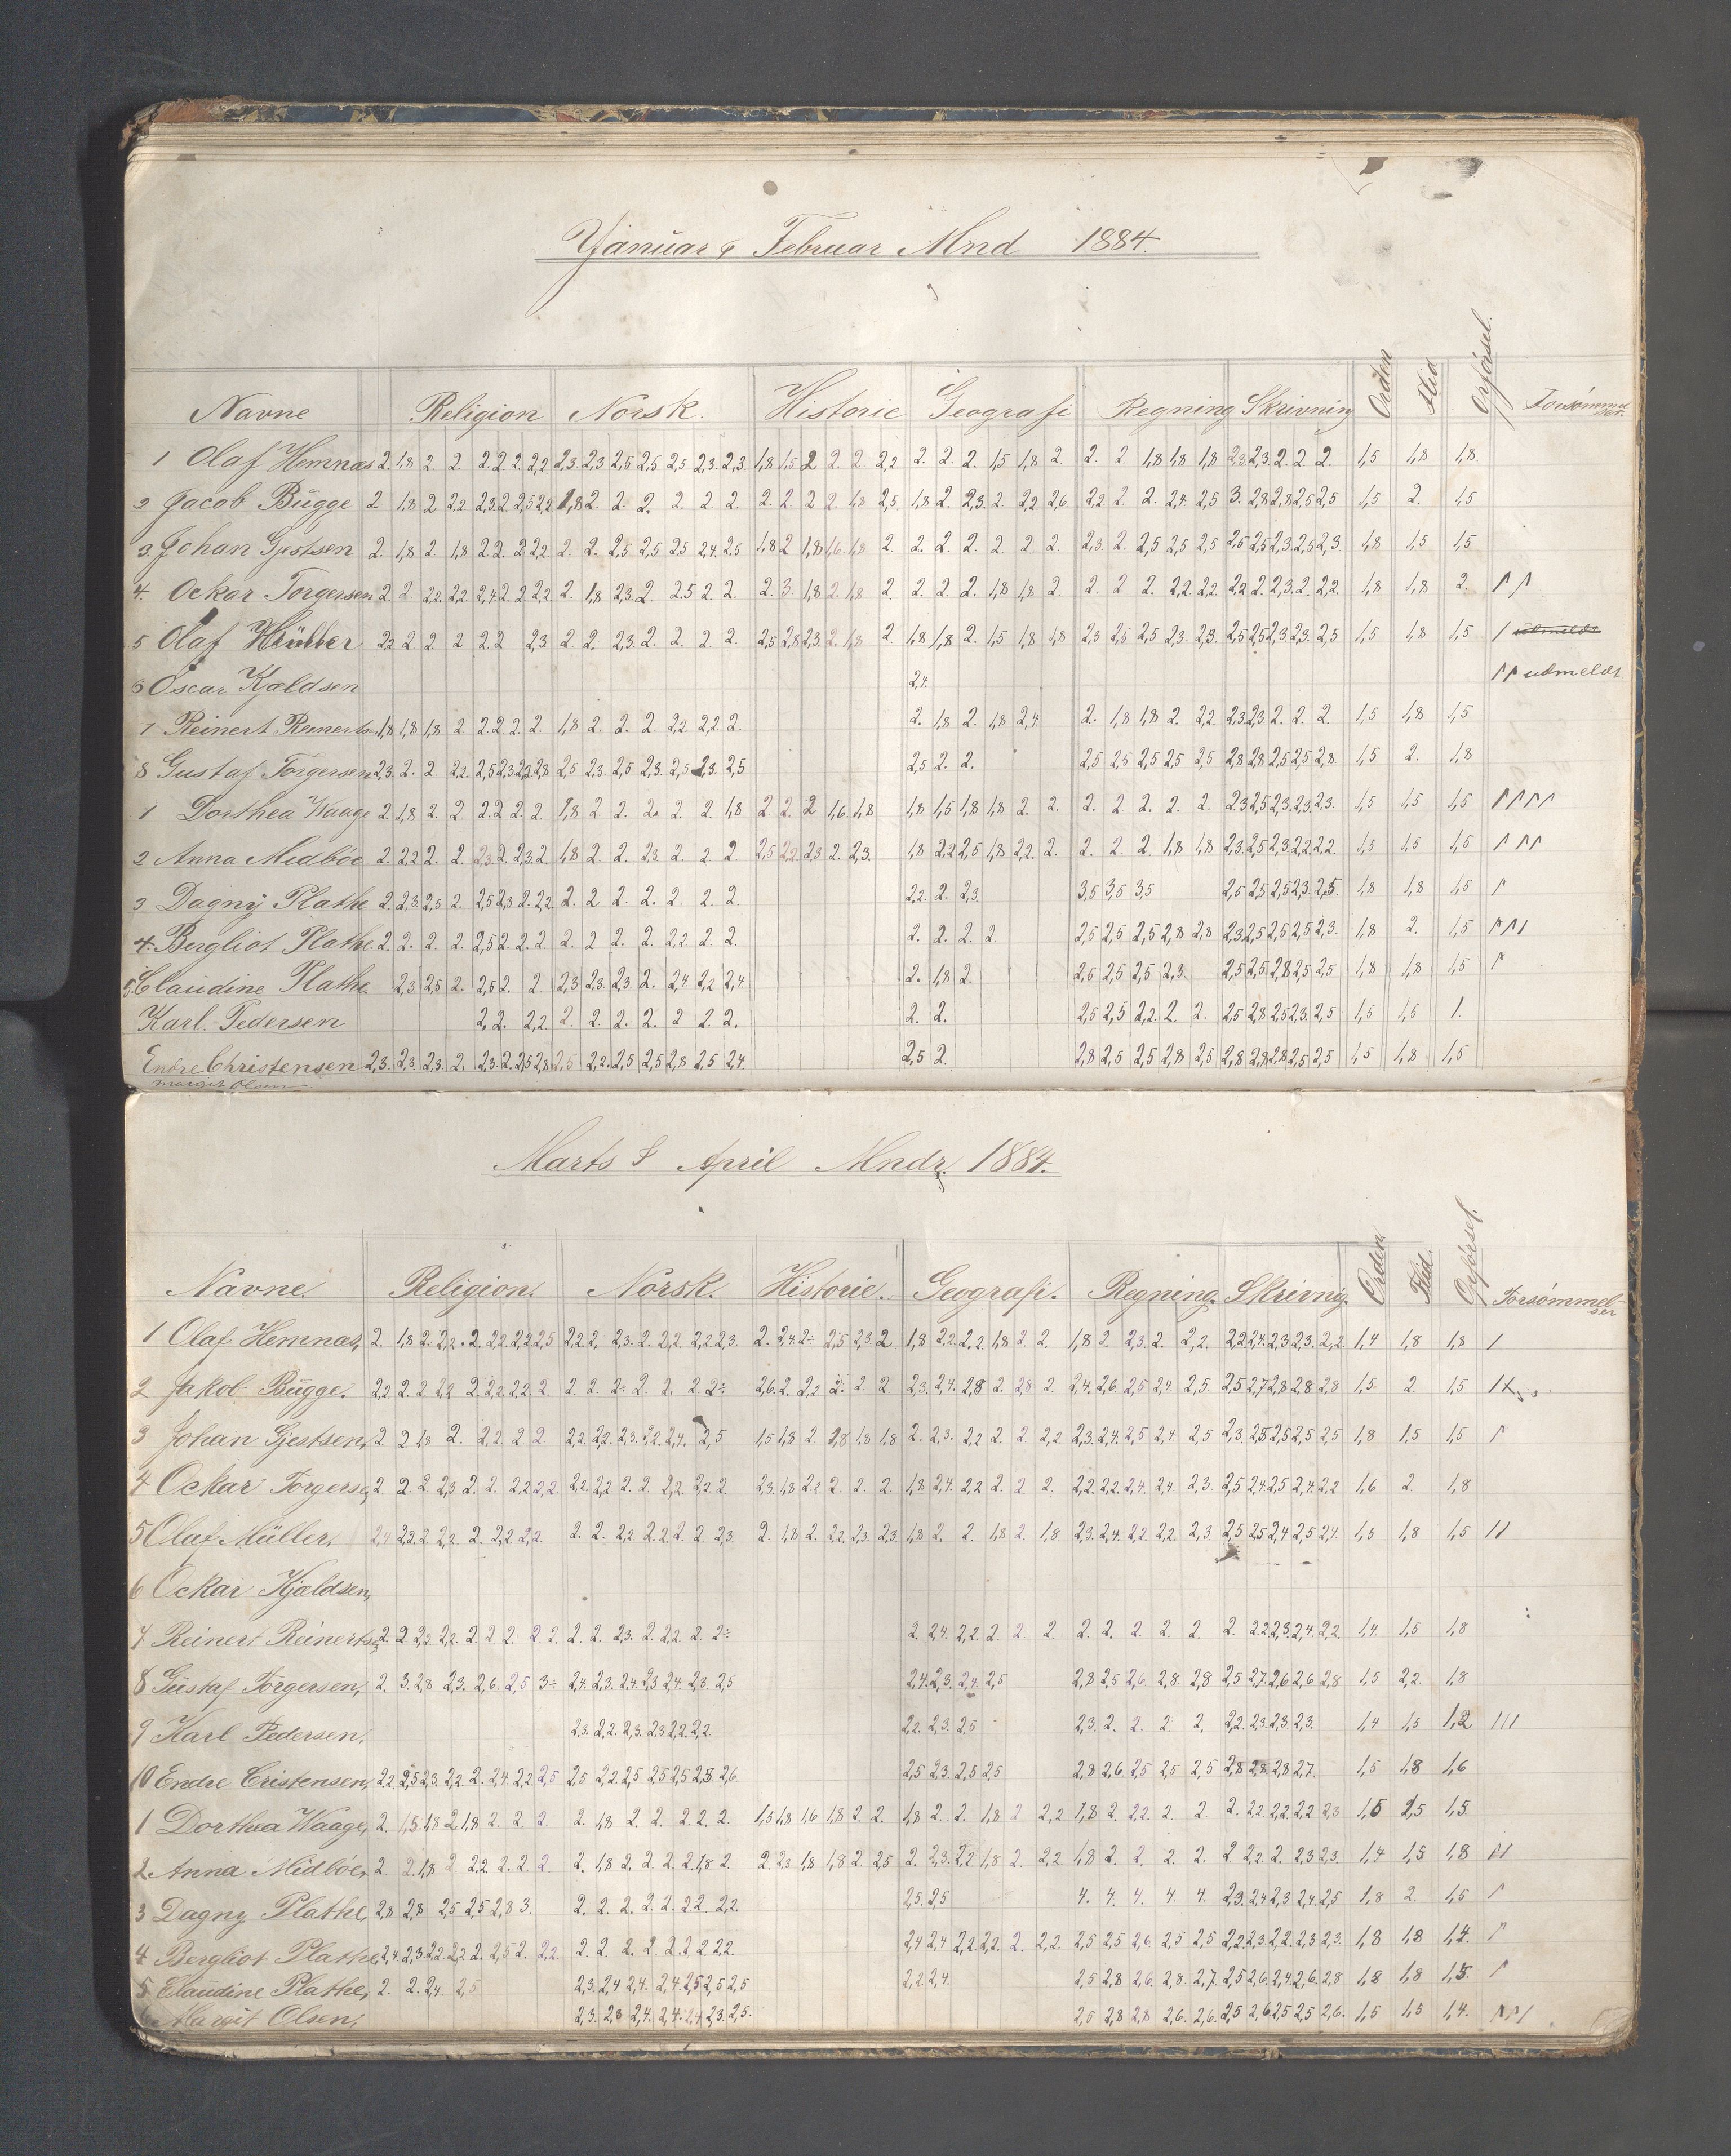 Januar & Februar Mnd 1884.
Navne Religion Norsk. Historie Geografi Regning Skrivning Orden Flid Opførsel. Forsømmelser.
1 Olaf Hemnæs 2. 1,8 2. 2. 2. 2 2. 2,2 2,3. 2,3 2,5 2,5 2,5 2,3. 2,3. 1,8 1,5 2 2. 2 2,2 2. 2. 2. 1,5 1,8 2. 2. 2 1,8 1,8 1,8 2,3 2,3 2. 2 2. 1,5 1,8 1,8
2 Jacob Bügge 2 1,8 2 2,2 2,3 2. 2,5 2,2 1,8 2 2. 2. 2. 2 2. 2. 2 2 2. 1,8 2,5 1,8 2. 2,3. 2. 2,2. 2,6. 2,2 2. 2. 2,4. 2,5 3. 2,8 2,8 2,5 2,5 1,5 2. 1,5
3. Johan Gjestsen 2. 1,8 2. 1,8 2 2. 2. 2,2 2. 2. 2,5 2,5 2,5 2,4. 2,5 1,8 2 1,8 1,6 1,8 2. 2. 2. 2. 2. 2. 2. 2,3. 2. 2,5 2,5 2,5 2,5 2,5 2,3. 2,5 2,3. 1,8 1,5 1,5
4. Ockar Torgersen 2 2. 2,2. 2,2. 2,4 2. 2 2,2 2. 1,8 2,3. 2. 2,5 2. 2. 2. 3. 1,8 2. 1,8 2. 2. 2. 2. 1,8 1,8 2 2. 2 2. 2,2. 2,2. 2,2 2. 2,3. 2. 2,2. 1,8 1,8 2. 1 1
5 Olaf Müller 2,2 2. 2 2 2. 2 2,3 2. 2. 2,3. 2. 2. 2. 2. 2,5 2,8 2,3. 2. 1,8 2. 1,8 1,8 2. 1,5 1,8 1,8 2,3 2,5 2,5 2,3. 2,3. 2,5 2,5 2,3. 2,3. 2,5 1,5 1,8 1,5 1 udmeldt
6 Oscar Kjældsen 2,4. 1 1 udmeldt.
7 Reinert Reinertsen 1,8 1,8 1,8 2 2. 2. 2. 2. 1,8 2. 2. 2. 2,2. 2,2 2. 2. 1,8 2. 1,8 2,4. 2. 1,8 1,8 2. 2,2. 2,3 2,3. 2. 2. 2. 1,5 1,8 1,5
8 Gustaf Torgersen 2,3. 2. 2. 2,2. 2,5 2,3 2,2 2,8 2,5 2,3. 2,5 2,3. 2,5 2,3. 2,5 2,5 2. 2. 2,5 2,5 2,5 2,5 2,5 2,8 2,8 2,5 2,5 2,8. 1,5 2. 1,8
1 Dorthea Waage 2. 1,8 2. 2. 2. 2 2. 2. 1,8 2 2. 2. 2. 2. 1,8 2 2. 2 1,6. 1,8. 1,8 1,5 1,8 1,8 2. 2. 2. 2 2. 2. 2. 2,3 2,5 2,3. 2,3. 2,3. 1,5 1,5 1,5 1 1 1 1
2 Anna Midbøe 2. 2,2 2. 2. 2,3. 2. 2,3. 2. 1,8 2. 2. 2,3. 2. 2. 2. 2,5 2,2. 2,3 2. 2,3. 1,8 2,2 2,5 1,8 2,2. 2. 2. 2. 2. 1,8 1,8 2,3. 2,5 2,3. 2,2 2,2 1,5 1,5 1,5 1 1 1
3 Dagny Plathe 2. 2,3. 2,5 2. 2,5 2,3 2. 2,2 2. 2 2. 2. 2. 2. 2. 2,2. 2. 2,3. 3,5 3,5 3,5 2,5 2,5 2,5 2,3. 2,5 1,8 1,8 1,5 1
4. Bergliot Plathe 2. 2. 2. 2. 2,5 2. 2. 2. 2. 2 2. 2. 2,2 2. 2. 2. 2. 2. 2. 2,5 2,5 2,5 2,8 2,8 2,3 2,5 2,5 2,5 2,3. 1,8 2. 1,5 1 1 1
5 Claudine Plathe. 2,3. 2,5 2. 2,5 2. 2 2,3 2,3. 2,3. 2. 2,4. 2,2 2,4 2. 1,8 2. 2,5 2,5 2,5 2,3. 2,5 2,5 2,8 2,5 2,5 1,8 1,8 1,5 1
Karl. Pedersen 2. 2. 2,2 2. 2. 2. 2. 2 2. 2. 2. 2. 2,5 2,5 2,2. 2. 2. 2,5 2,8 2,5 2,3. 2,5 1,5 1,5 1.
Endre Christensen 2,3. 2,3. 2,3. 2. 2,3. 2. 2,5 2,8 2,5 2,2. 2,5 2,5 2,8 2,5 2,4. 2,5 2. 2,8 2,5 2,5 2,8 2,5 2,8 2,8 2,8 2,5 2,5 1,5 1,8 1,5
Margit Olsen
Marts & April Mndr. 1884.
Navne. Religion. Norsk. Historie. Geografi. Regning. Skrivnig. Orden. Flid. Opførsel. Forsømmelser
1 Olaf Hemnæs, 2. 1,8 2. 2,2. 2. 2,2. 2,2 2,5 2,2 2. 2,3. 2. 2,2 2,2 2,3. 2. 2,4 2÷ 2,5 2,3 2 1,8 2,2. 2,2. 1,8 2 2. 1,8 2 2,3 2. 2,2. 2,2 2,4. 2,3 2,3. 2,2 1,4 1,8 1,8 1
2 Jakob Bügge. 2,2 2. 2 2,2 2. 2,2 2,2 2. 2. 2. 2÷ 2. 2. 2 2÷ 2,6. 2. 2,2 2. 2. 2 2,3. 2,4. 2,8 2. 2,8 2. 2,4. 2,6. 2,5 2,4. 2,5 2,5 2,7 2,8 2,8 2,8 1,5 2. 1,5
3 Johan Gjestsen, 2. 2 1,8 2. 2,2 2 2 2,2 2,2. 2,3. 2,2. 2,4. 2,5 1,5 1,8 2 1,8 1,8 1,8 2. 2,3. 2,2 2. 2 2,2 2,3. 2,4. 2,5 2,4. 2,5 2,3. 2,5 2,5 2,5 2,5 1,8 1,5 1,5 1
4 Ockar Torgersen, 2. 2. 2 2,3 2. 2. 2,2 2,2. 2,2. 2,2 2. 2. 2,2. 2,2. 2. 2,3. 1,8 2,2 2. 2. 2 1,8 2,4. 2,2 2. 2 2. 2,2 2,2. 2,4. 2,4. 2,3. 2,5 2,4 2,5 2,4. 2,2 1,6 2. 1,8
5 Olaf Müller, 2,4 2,2. 2 2,2 2. 2,2 2,2 2. 2. 2,2 2. 2. 2. 2. 2,3. 2. 1,8 2. 2,2. 2,3. 2,3. 1,8 2. 2. 1,8 2. 1,8 2,3. 2,4. 2,2 2,2. 2,3. 2,5 2,5 2,4 2,5 2,4. 1,5 1,8 1,5 1 1
6 Ockar Kjældsen,
7 Reinert Reinertsen 2. 2 2,2. 2,2. 2. 2 2. 2. 2. 2. 2. 2,3. 2. 2,2. 2. 2÷ 2 2,4. 2,2. 2. 2. 2. 2. 2. 2. 2. 2. 2. 2,2 2,3. 2,4. 2,2. 1,4 1,5 1,8
8 Güstaf Torgersen, 2. 3. 2,8 2,3. 2,6. 2,5 3÷ 2,4. 2,3. 2,4. 2,3 2,4. 2,3. 2,5 2,4. 2,3. 2,4. 2,5 2,8 2,5 2,6. 2,8 2,8 2,5 2,7. 2,6 2,6 2,8 1,5 2,2. 1,8
9 Karl Pedersen, 2,3. 2,2. 2,3. 2,3 2,2 2,2. 2,2. 2,3. 2,5 2,3. 2. 2. 2. 2. 2,2. 2,3. 2,3. 2,3. 1,4 1,5 1,2 1 1 1
10 Endre Cristensen, 2,2 2,5 2,3. 2,2. 2. 2,4. 2,2 2,5 2,5 2,2. 2,5 2,5 2,5 2,5 2,6. 2,5 2,3. 2,5 2,5 2,8 2,6. 2,5 2,5 2,5 2,8 2,8 2,8 2,7. 1,5 1,8 1,6
1 Dorthea Waage, 2. 1,5 1,8 2 1,8 2. 2. 2 2. 1,8 2. 2. 2. 2. 2. 1,5 1,8 1,6 1,8 2. 2. 1,8 2. 2. 1,8 2 2,2 1,8 2. 2,2. 2. 2. 2. 2,2. 2,2 2,2 2,3 1,5 1,5 1,5
2 Anna Midbøe, 2. 2. 1,8 2 2,2 2. 2. 2 2. 1,8 2. 2. 2. 2. 1,8 2. 2. 2,3 1,8 1,8 2. 2,5 2. 2,3. 2,2 1,8 2. 2,2 1,8 2. 2. 2. 2. 2. 2,2. 2. 2,3 2,3. 1,4 1,5 1,8 1 1
3 Dagny Plathe, 2,8 2,8 2,5 2,5 2,8 3. 2. 2. 2. 2. 2. 2,2. 2,2. 2,5 2,5 4. 4. 4. 4. 4. 2,3. 2,4 2,3 2,4 2,5 1,8 2. 1,5 1
4 Bergliot Plathe, 2,4. 2,3. 2,2 2,2 2. 2,5 2. 2,2 2. 2. 2. 2. 2. 2. 2,2. 2,4 2,4 2,2 2,2. 2. 2,2. 2,5 2,5 2,6. 2,5 2,5 2,2 2,3. 2,2. 2,3 2,3. 1,8 1,8 1,4. 1
5 Claudine Plathe, 2. 2. 2,4. 2,5 2,3. 2,4 2,4. 2,4. 2,5 2,5 2,5 2,2 2,4. 2,5 2,8 2,6. 2,8. 2,7. 2,5 2,6. 2,4. 2,6. 2,8 1,8 1,8 1,5. 1
6 Margit Olsen, 2,3. 2,8 2,4. 2,4. 2,4 2,3. 2,5. 2,5 2,8 2,8 2,6. 2,6. 2,5 2,6 2,5 2,5 2,6. 1,5 1,5 1,4. 1 1 1